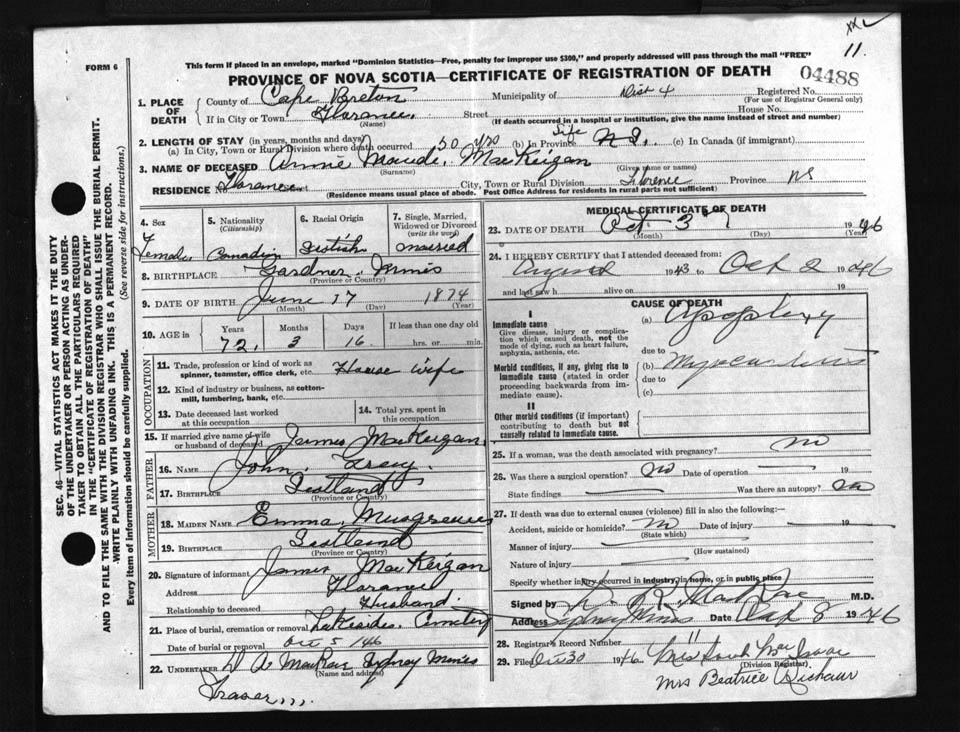 11.
This form if placed in an envelope, marked "Dominion Statistics—Free, penalty for improper use $300," and properly addressed will pass through the mail "FREE"
FORM 6
PROVINCE OF NOVA SCOTIA—CERTIFICATE OF REGISTRATION OF DEATH
04488
1. PLACE OF DEATH
County of Cape Breton Municipality of Dist 4 Registered No.
(For use of Registrar General only)
If in City or Town Florance Street House No.
(Name) (If death occurred in a hospital or institution, give the name instead of street and number)
2. LENGTH OF STAY (in years, months and days)
(a) In City, Town or Rural Division where death occurred 50 yrs (b) In Province Life N S. (c) In Canada (if immigrant)
3. NAME OF DECEASED Annie Maude MacKeigan
(Surname) (Given name or names)
RESIDENCE Florance City, Town or Rural Division Florence Province NS
(Residence means usual place of abode. Post Office Address for residents in rural parts not sufficient)
SEC. 46—VITAL STATISTICS ACT MAKES IT THE DUTY
OF THE UNDERTAKER OR PERSON ACTING AS UNDER-
TAKER TO OBTAIN ALL THE PARTICULARS REQUIRED
IN THE "CERTIFICATE OF REGISTRATION OF DEATH"
AND TO FILE THE SAME WITH THE DIVISION REGISTRAR WHO SHALL ISSUE THE BURIAL PERMIT.
WRITE PLAINLY WITH UNFADING INK. THIS IS A PERMANENT RECORD.
Every item of information should be carefully supplied. (See reverse side for instructions.)
4. Sex Female
5. Nationality (Citizenship) Canadian
6. Racial Origin Scotish
7. Single, Married, Widowed or Divorced (write the word) married
8. BIRTHPLACE Gardner Mines
(Province or Country)
9. DATE OF BIRTH June 17 1874
(Month) (Day) (Year)
10. AGE in Years Months Days If less than one day old
72, 3 16 hrs. or min.
OCCUPATION
11. Trade, profession or kind of work as spinner, teamster, office clerk, etc. House wife
12. Kind of industry or business, as cotton-mill, lumbering, bank, etc.
13. Date deceased last worked at this occupation
14. Total yrs. spent in this occupation
15. If married give name of wife or husband of deceased James MacKeigan
FATHER
16. NAME John
17. BIRTHPLACE Scotland
(Province or Country)
MOTHER
18. MAIDEN NAME Emma
19. BIRTHPLACE Scotland
(Province or Country)
20. Signature of informant James MacKeigan
Address Florance
Relationship to deceased Husband
21. Place of burial, cremation or removal Lakeside Cemetery
Date of burial or removal Oct 5 46
22. UNDERTAKER Sydney Mines
(Name and address)
MEDICAL CERTIFICATE OF DEATH
23. DATE OF DEATH Oct 3 1946
(Month) (Day) (Year)
24. I HEREBY CERTIFY that I attended deceased from:
August 1943 to Oct 2 1946
and last saw h alive on 19
CAUSE OF DEATH
I
Immediate cause
Give disease, injury or complication which caused death, not the mode of dying, such as heart failure, asphyxia, asthenia, etc.
(a) Apoplexy
due to
Morbid conditions, if any, giving rise to immediate cause (stated in order proceeding backwards from immediate cause).
(b) Myocarditis
due to
(c)
II
Other morbid conditions (if important) contributing to death but not causally related to immediate cause.
25. If a woman, was the death associated with pregnancy? no
26. Was there a surgical operation? no Date of operation 19
State findings Was there an autopsy? no
27. If death was due to external causes (violence) fill in also the following:—
Accident, suicide or homicide? no Date of injury 19
(State which)
Manner of injury
(How sustained)
Nature of injury
Specify whether injury occurred in industry, in home, or in public place
Signed by MacRae M.D.
Address Sydney Mines Date 8 1946
28. Registrar's Record Number
29. Filed Oct 30 1946 Mrs Mac Isaac
(Division Registrar)
Mrs Beatrice
Fraser